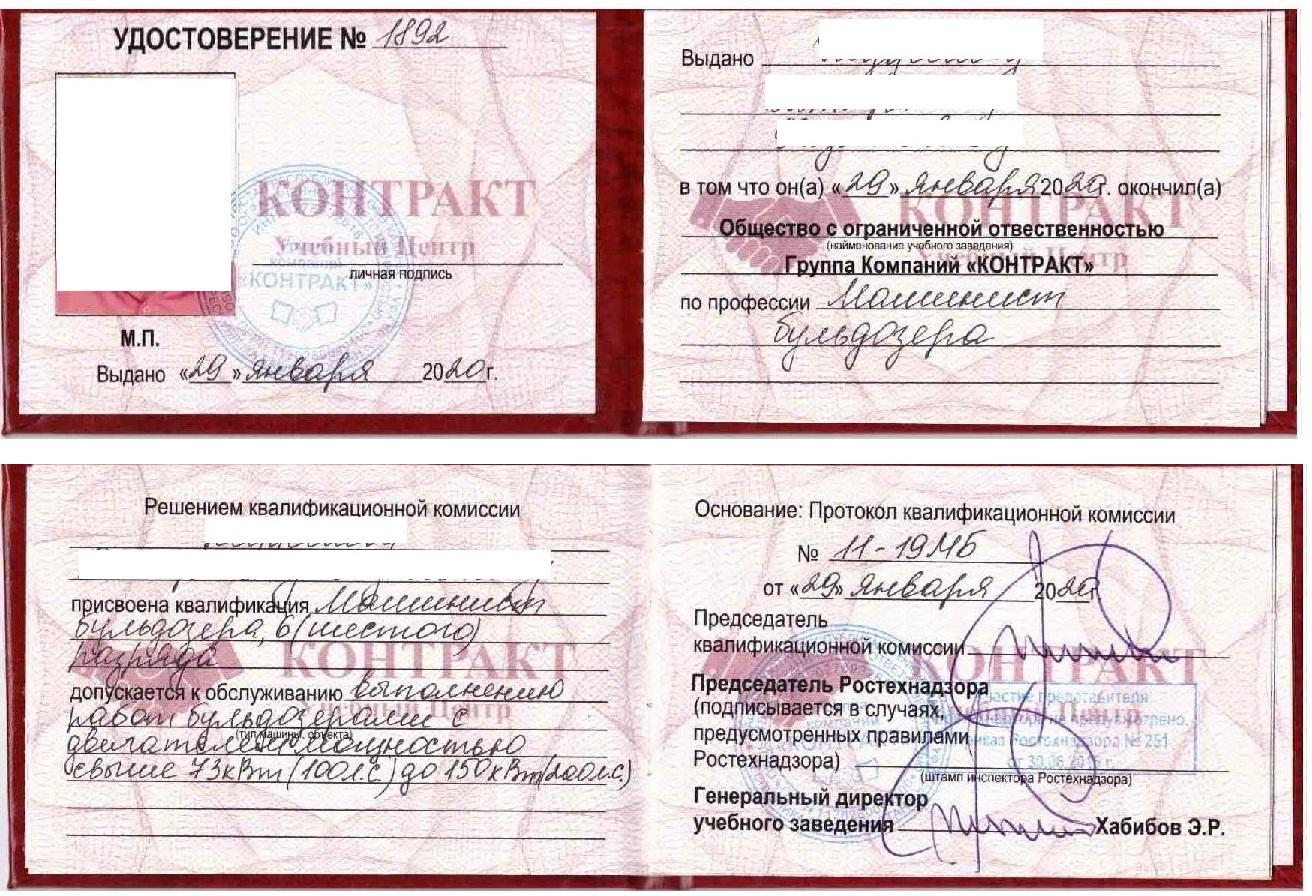 УДОСТОВЕРЕНИЕ № 1892
КОНТРАКТ
Учебный Центр
«КОНТРАКТ»
личная подпись
М.П.
Выдано «29» января 2020г.
Выдано
в том что он(а) «29» января 2020г. окончил(а)
КОНТРАКТ
Учебный Центр
Общество с ограниченной отвественностью
(наименование учебного заведения)
Группа Компаний «КОНТРАКТ»
по профессии Машинист
бульдозера
Решением квалификационной комиссии
присвоена квалификация Машинист
бульдозера, 6 (шестого)
разряда
КОНТРАКТ
Учебный Центр
допускается к обслуживанию выполнению
работ бульдозерами с
(тип машины, объекта)
двигателем мощностью
свыше 73кВт (100л.с) до 150кВт (200л.с.)
Основание: Протокол квалификационной комиссии
№ 11-19МБ
от «29» января 2020г
Председатель
квалификационной комиссии
КОНТРАКТ
Председатель Ростехнадзора
(подписывается в случаях,
предусмотренных правилами
Ростехнадзора)
участие представителя
предусмотрено.
приказ Ростехнадзора № 251
от 30.06.2015 г.
(штамп инспектора Ростехнадзора)
Генеральный директор
учебного заведения Хабибов Э.Р.